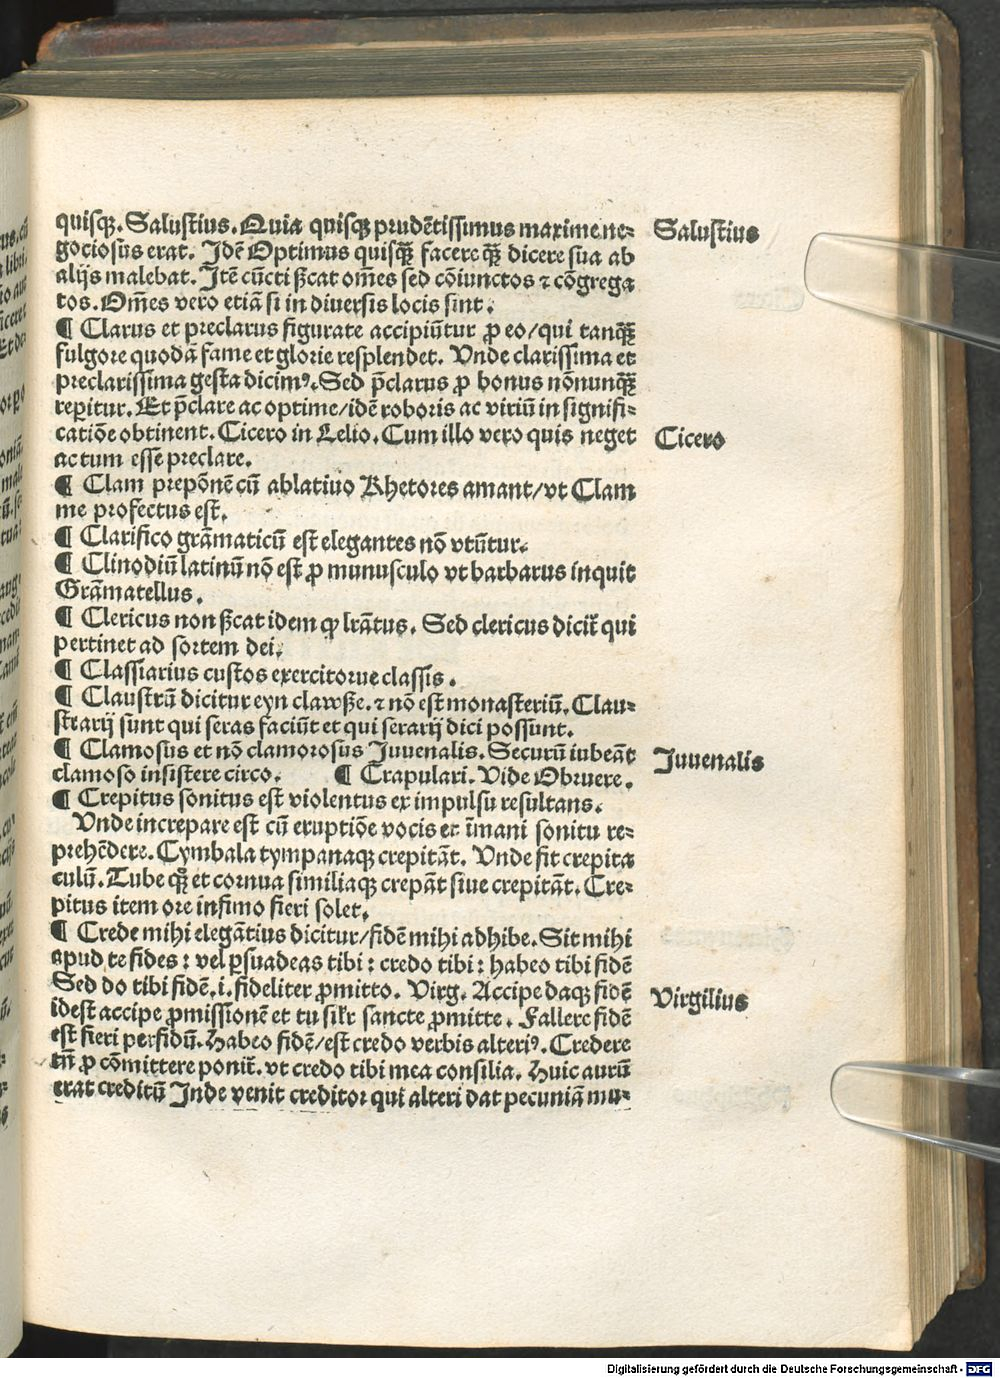 quisqꝫ. Salustius. Quia quisqꝫ prudētissimus maxime ne⸗
gociosus erat. Idē Optimus quisqꝫ̄ facere qꝫ̄ dicere sua ab
alijs malebat. Itē cūcti ßcat om̄es sed cōiunctos ⁊ cōgrega
tos. Om̄es vero etiā si in diuersis locis sint.
¶ Clarus et preclarus figurate accipiūtur ꝓ eo/qui tanqꝫ̄
fulgore quodā fame et glorie resplendet. Vnde clarissima et
preclarissima gesta dicimꝰ. Sed p̄clarus ꝓ bonus nōnunqꝫ̄
reꝑitur. Et p̄clare ac optime/idē roboris ac viriū in signifi⸗
catiōe obtinent. Cicero in Lelio. Cum illo vero quis neget
actum esse preclare.
¶ Clam prepōnē cū ablatiuo Rhetores amant/vt Clam
me profectus est.
¶ Clarifico grāmaticū est elegantes nō vtūtur.
¶ Clinodiū latinū nō est ꝓ munusculo vt barbarus inquit
Grāmatellus.
¶ Clericus non ßcat idem ꝙ lrātus. Sed clericus dicit̄ qui
pertinet ad sortem dei.
¶ Classiarius custos exercitorue classis.
¶ Claustrū dicitur eyn clawße. ⁊ nō est monasteriū. Clau⸗
strarij sunt qui seras faciūt et qui serarij dici possunt.
¶ Clamosus et nō clamorosus Juuenalis. Securū iubeāt
clamoso insistere circo. ¶ Crapulari. Vide Obruere.
¶ Crepitus sonitus est violentus ex impulsu resultans.
Vnde increpare est cū eruptiōe vocis et īmani sonitu re⸗
prehēdere. Cymbala tympanaqꝫ crepitāt. Vnde fit crepita
culū. Tube qꝫ̄ et cornua similiaqꝫ crepāt siue crepitāt. Cre⸗
pitus item ore infimo fieri solet.
¶ Crede mihi elegātius dicitur/fidē mihi adhibe. Sit mihi
apud te fides: vel ꝑsuadeas tibi: credo tibi: habeo tibi fidē
Sed do tibi fidē .i. fideliter ꝓmitto. Virg. Accipe daqꝫ fidē
idest accipe ꝓmissionē et tu sil̄r sancte ꝓmitte. Fallere fidē
est fieri perfidū. Habeo fidē/est credo verbis alteriꝰ. Credere
tn̄ ꝓ cōmittere ponit̄. vt credo tibi mea consilia. Huic aurū
erat creditū Inde venit creditor qui alteri dat pecuniā mu⸗
Salustius
Cicero
Juuenalis
Virgilius
Digitalisierung gefördert durch die Deutsche Forschungsgemeinschaft - DFG